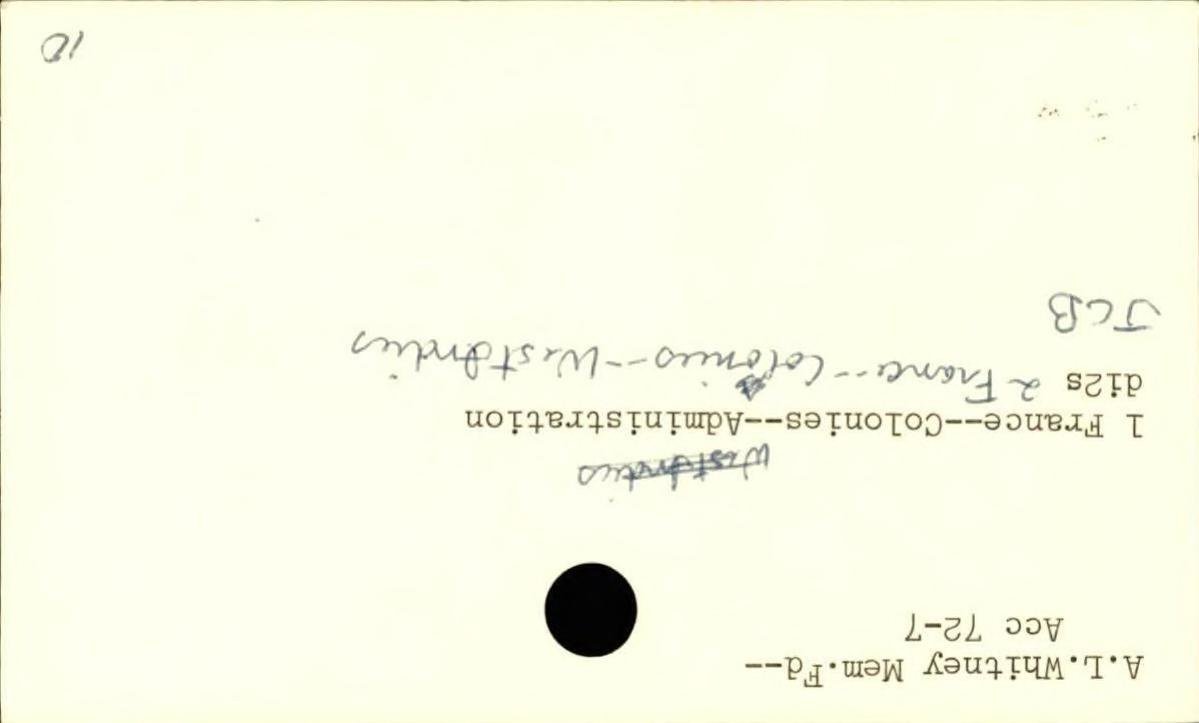 A.L.Whitney Mem.Fd--
Acc 72-7
West Indies
1 France--Colonies--Administration
di2s 2 France--Colonies--West Indies
JCB